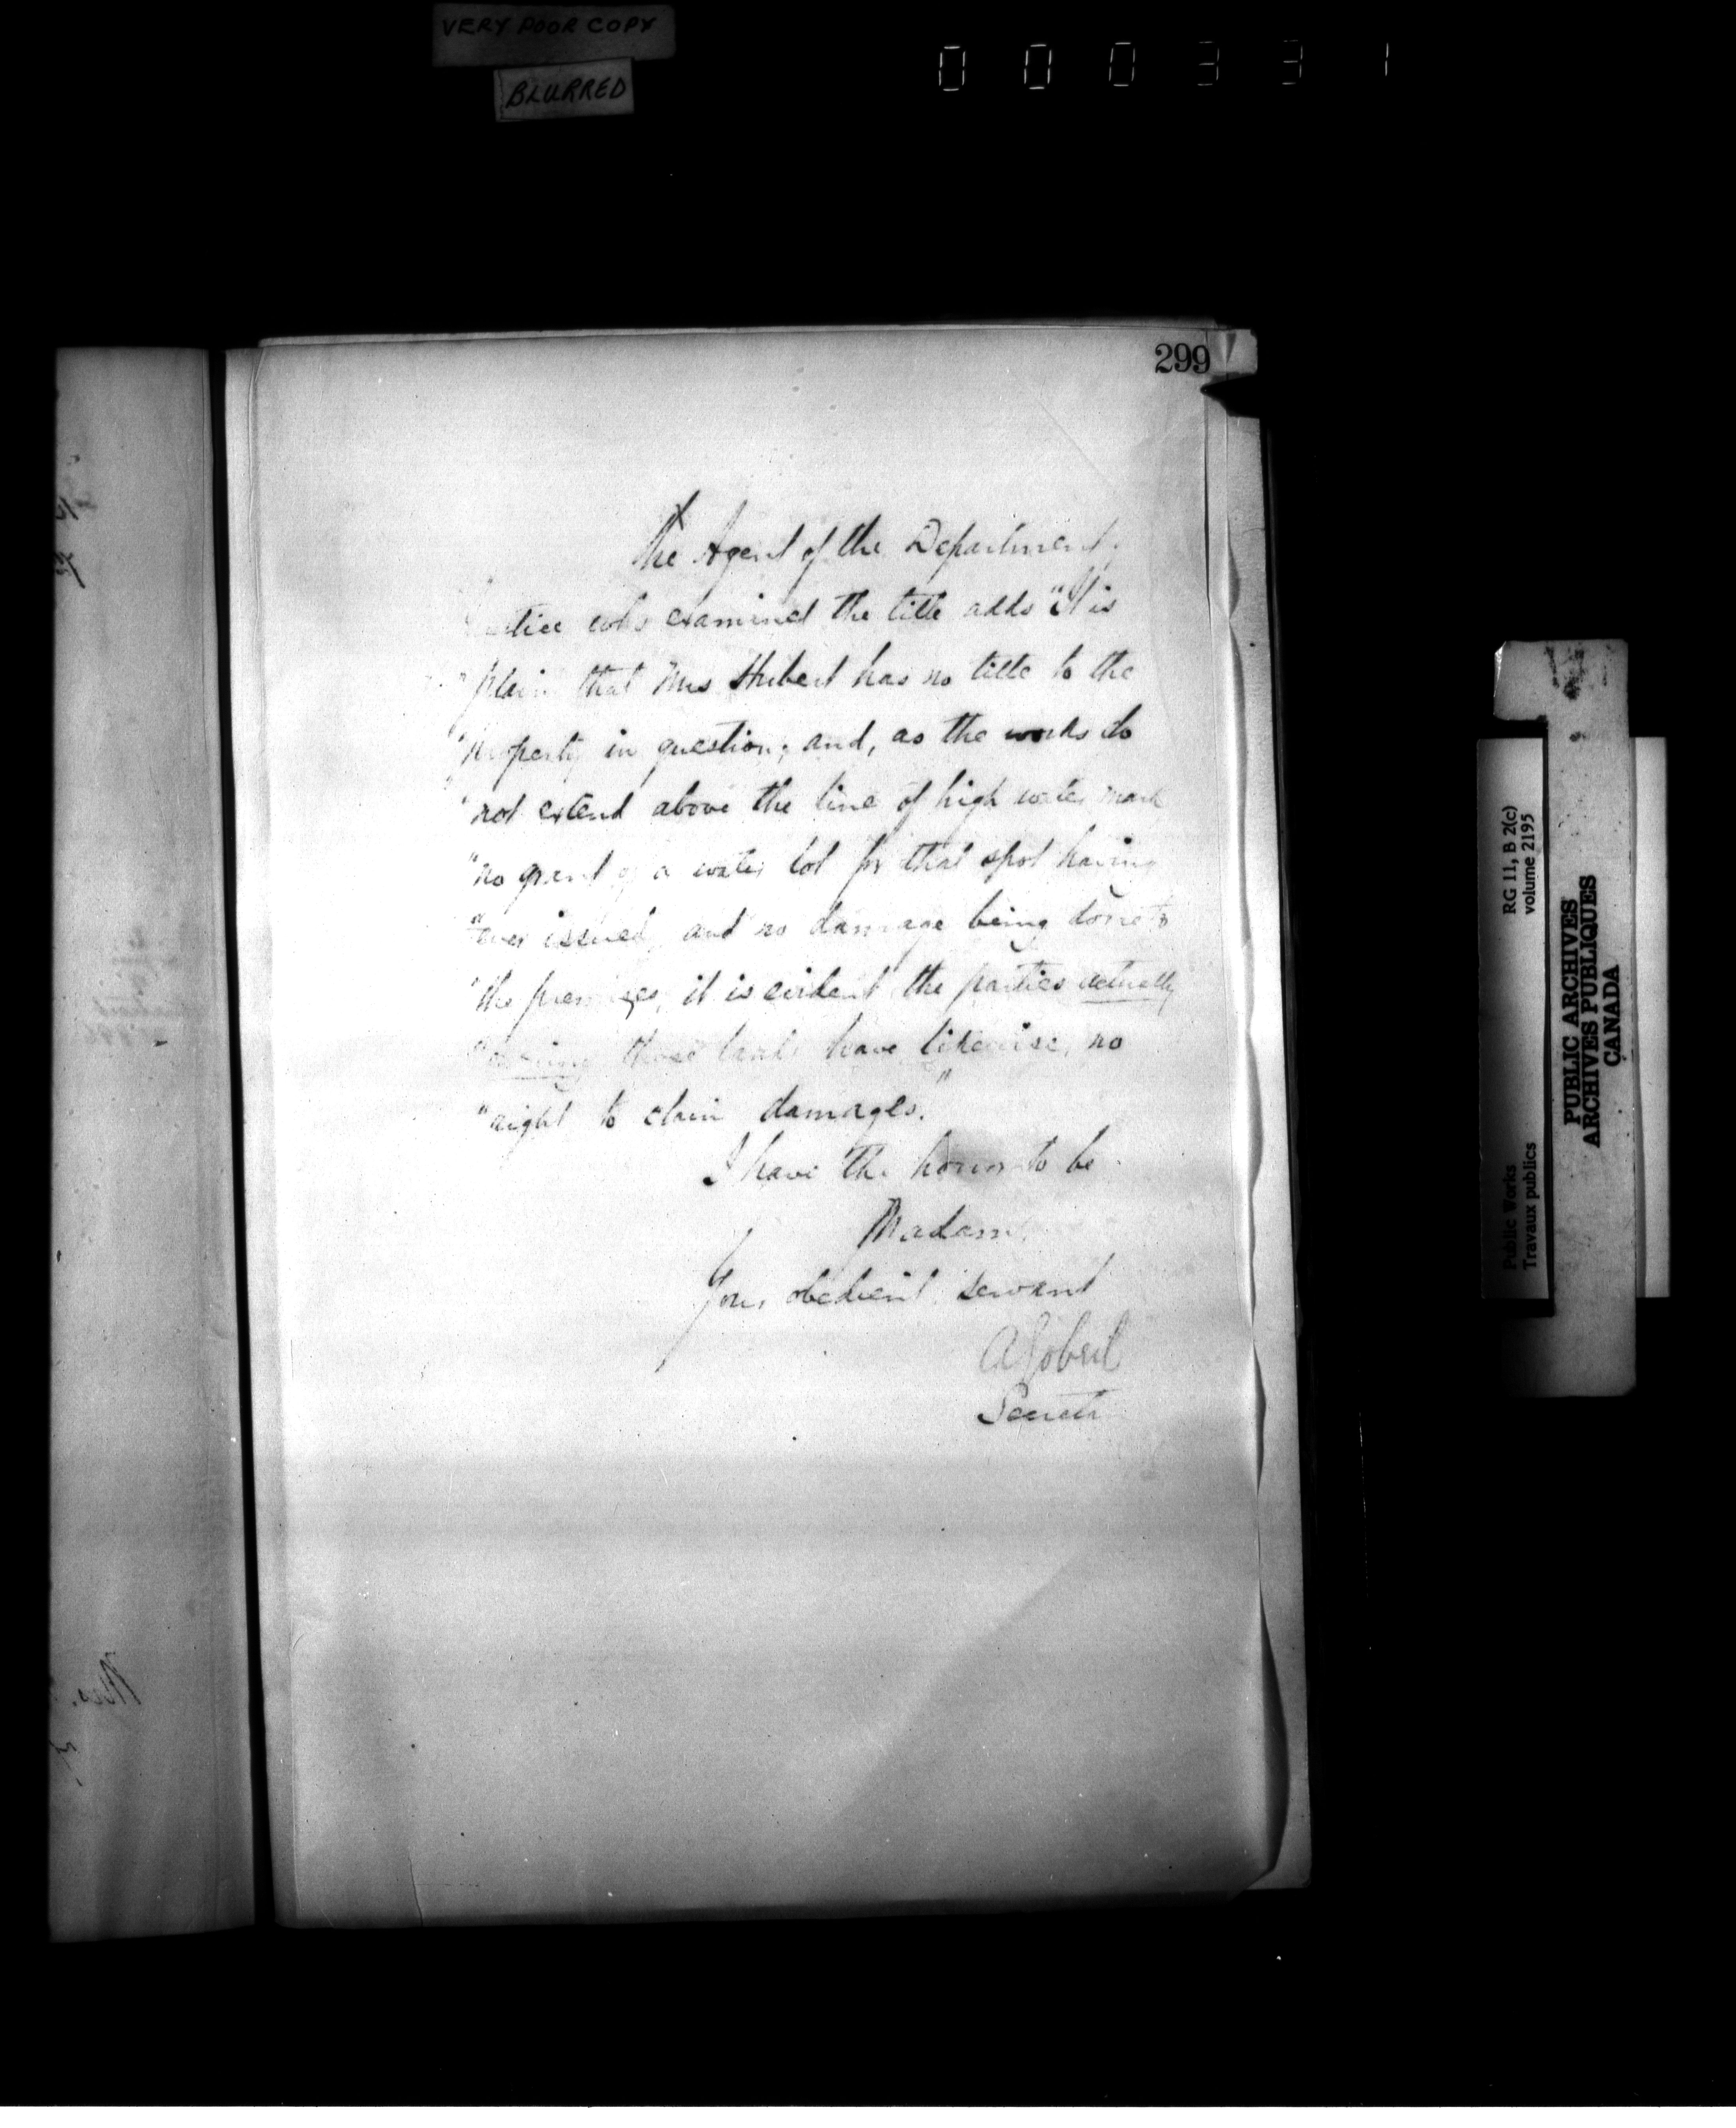 VERY POOR COPY
BLURRED
000331
299
The Agent of the Department
who examined the title adds "It is
"plain that Mrs Hubert has no title to the
"property in question; and, as the works do
"not extend above the line of high water mark
"no grant of a water lot for that spot having
"ever issued, and no damage being done to
"the premises, it is evident the parties actually
"owning those lands have likewise, no
"right to claim damages."
I have the honor to be
Madam,
Your obedient servant
A Gobeil
Secret
RG 11, B 2(c)
volume 2195
Public Works
Travaux publics
PUBLIC ARCHIVES
ARCHIVES PUBLIQUES
CANADA